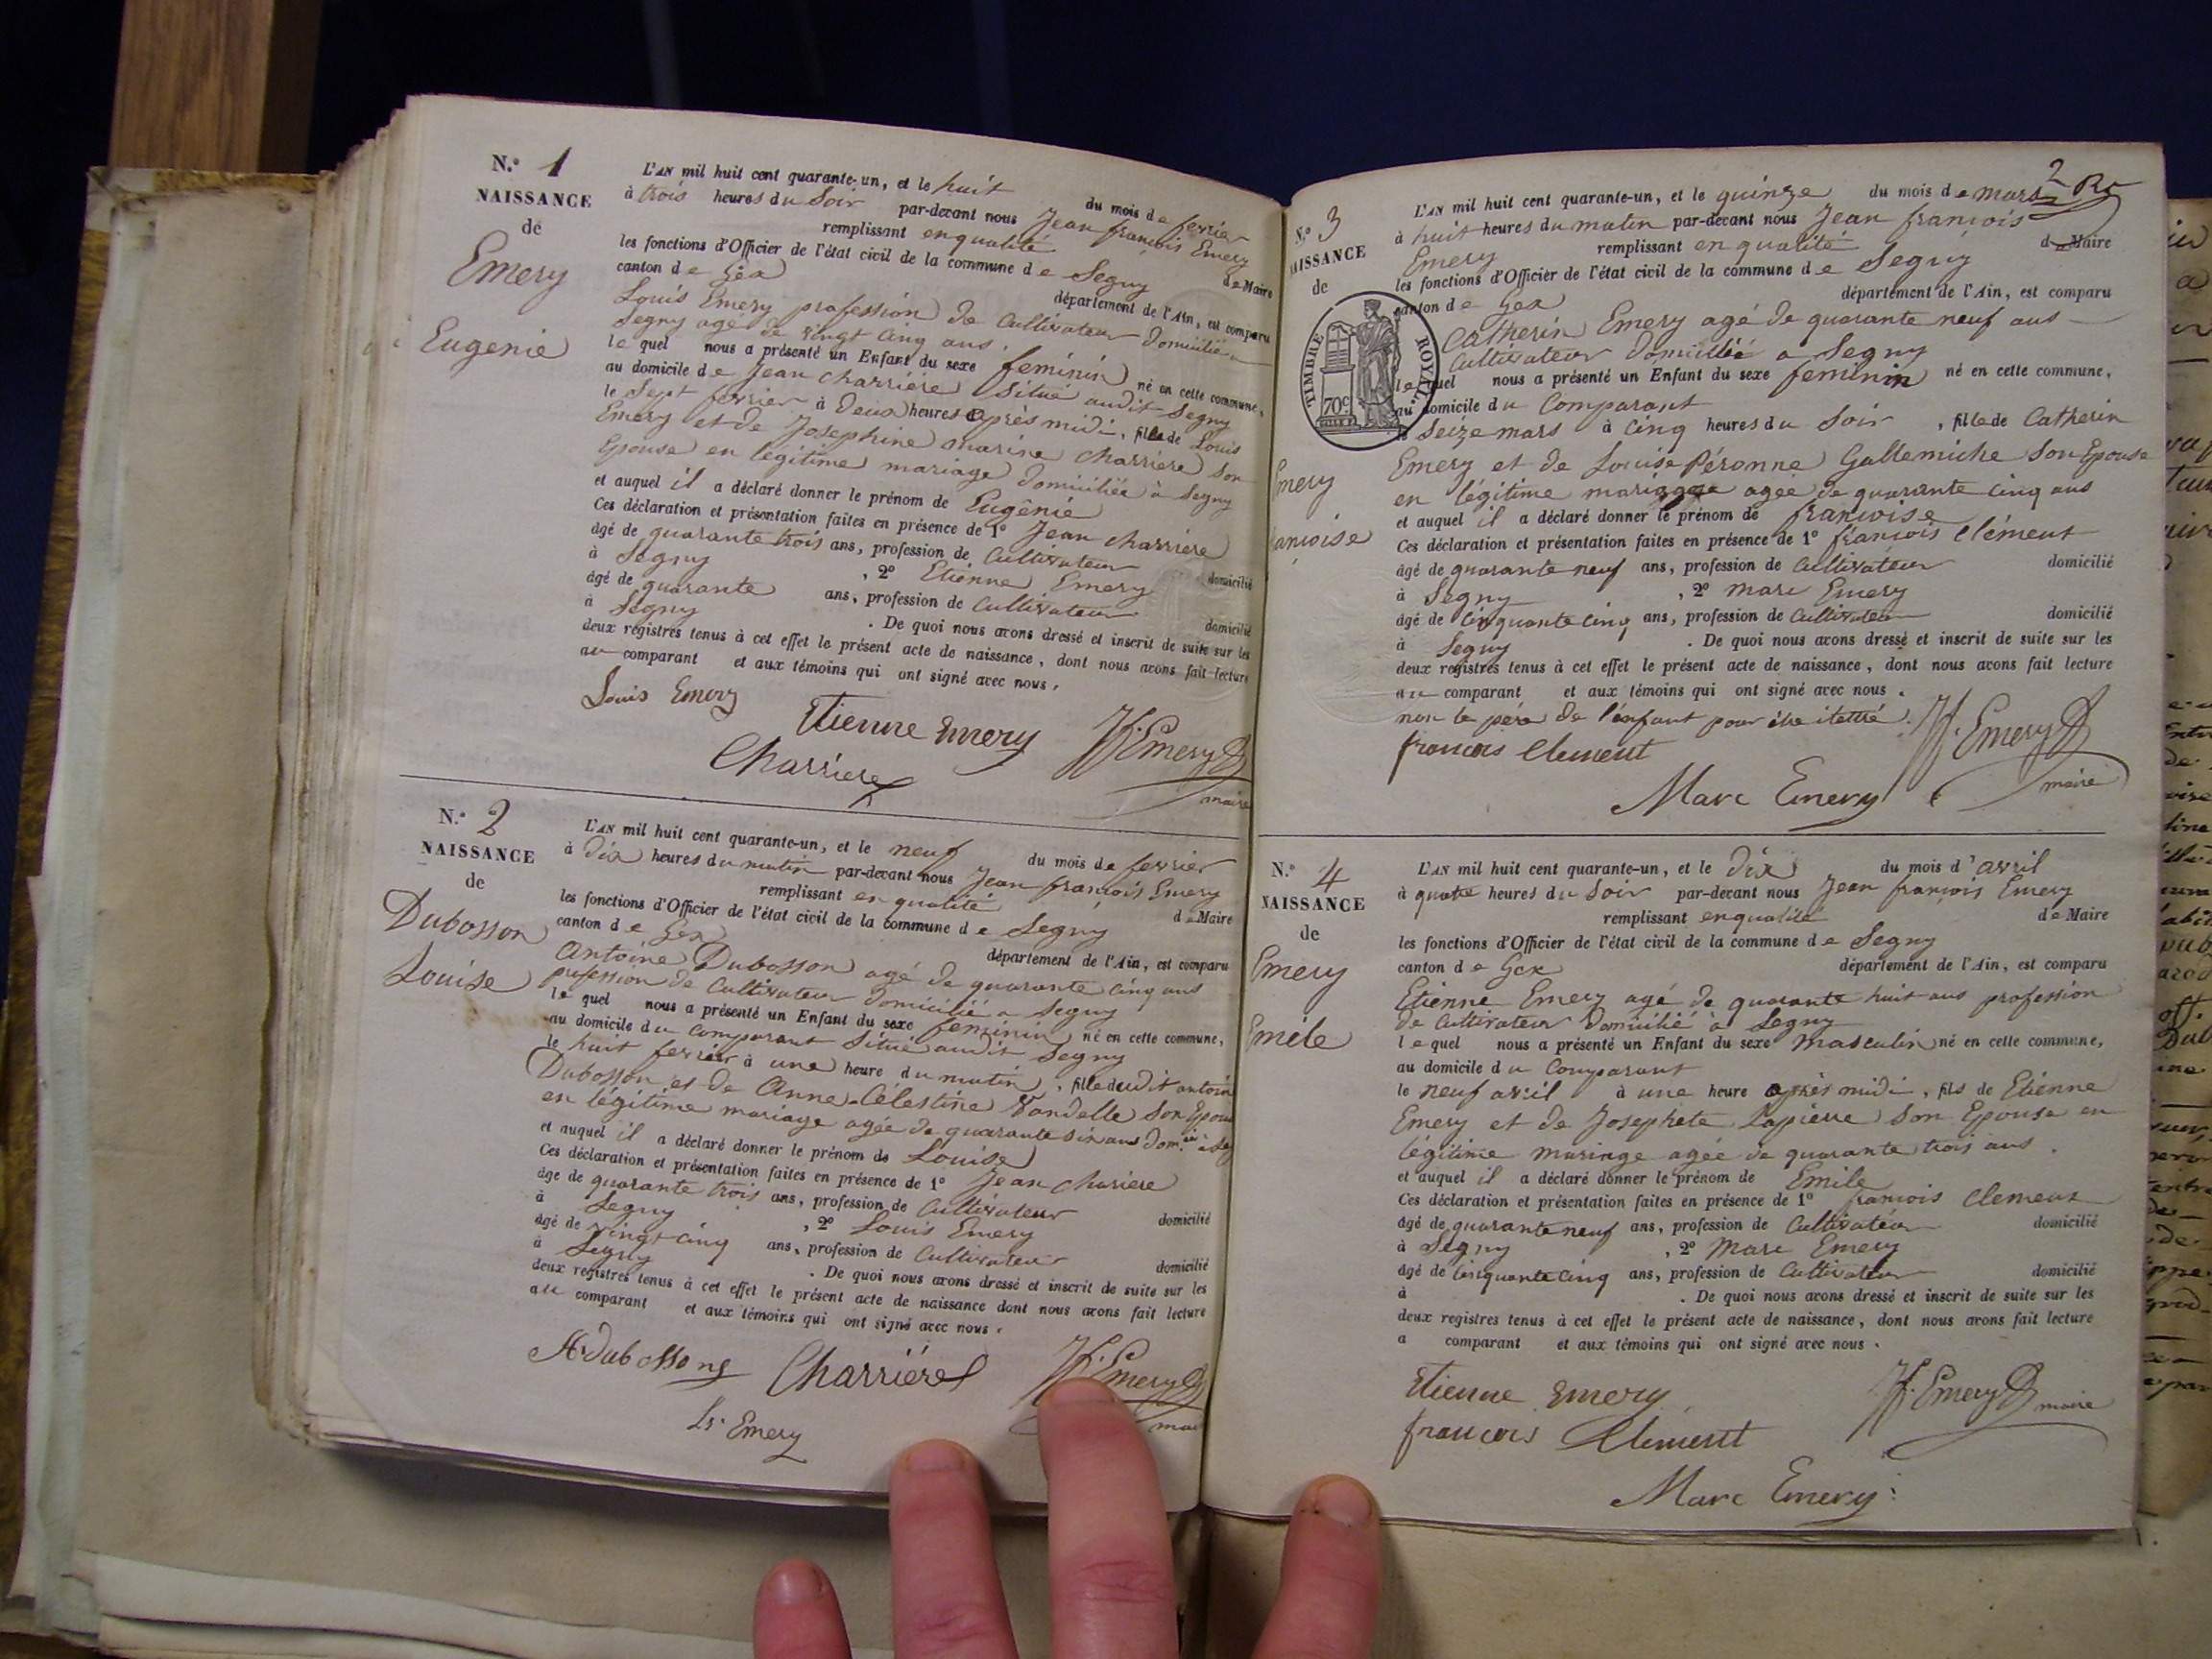 N.° 1
NAISSANCE
de
Emery
Eugenie
L'AN mil huit cent quarante-un, et le huit du mois de fevrier
à trois heures du Soir par-devant nous Jean françois Emery
remplissant en qualité de Maire
les fonctions d'Officier de l'état civil de la commune de Segny
canton de Gex département de l'Ain, est comparu
Louis Emery profession de Cultivateur domicilié à
Segny agé de vingt cinq ans,
lequel nous a présenté un Enfant du sexe feminin né en cette commune,
au domicile de Jean charriere Situé audit Segny
le Sept fevrier à Deux heures après midi, fille de Louis
Emery et de Josephine marine Charriere Son
Epouse en legitime mariage domiciliée à Segny
et auquel il a déclaré donner le prénom de Eugénie
Ces déclaration et présentation faites en présence de 1° Jean charriere
âgé de quarante trois ans, profession de Cultivateur domicilié
à Segny , 2° Etienne Emery
âgé de quarante ans, profession de Cultivateur domicilié
à Segny . De quoi nous avons dressé et inscrit de suite sur les
deux registres tenus à cet effet le présent acte de naissance, dont nous avons fait lecture
au comparant et aux témoins qui ont signé avec nous.
Louis Emery
Etienne Emery
Charriere
Jf. Emery
maire
N.° 2
NAISSANCE
de
Dubosson
Louise
L'AN mil huit cent quarante-un, et le neuf du mois de fevrier
à Dix heures du matin par-devant nous Jean françois Emery
remplissant en qualité de Maire
les fonctions d'Officier de l'état civil de la commune de Segny
canton de Gex département de l'Ain, est comparu
Antoine Dubosson agé de quarante cinq ans
profession de Cultivateur domicilié a Segny
lequel nous a présenté un Enfant du sexe feminin né en cette commune,
au domicile du comparant Situé audit Segny
le huit fevrier à une heure du matin, fille dudit antoine
Dubosson et de Anne-Célestine Vandelle Son Epouse
en légitime mariage agée de quarante six ans dom.ée à Seg
et auquel il a déclaré donner le prénom de Louise
Ces déclaration et présentation faites en présence de 1° Jean chariere
âgé de quarante trois ans, profession de Cultivateur domicilié
à Segny , 2° Louis Emery
âgé de vingt cinq ans, profession de Cultivateur domicilié
à Segny . De quoi nous avons dressé et inscrit de suite sur les
deux registres tenus à cet effet le présent acte de naissance dont nous avons fait lecture
au comparant et aux témoins qui ont signé avec nous.
Charriére
Jf. Emery
Ls. Emery
mai
2
N.° 3
AISSANCE
de
Emery
ançoise
TIMBRE ROYAL
70c
L'AN mil huit cent quarante-un, et le quinze du mois de mars
à huit heures du matin par-devant nous Jean françois
Emery remplissant en qualité de Maire
les fonctions d'Officier de l'état civil de la commune de Segny
canton de Gex département de l'Ain, est comparu
Catherin Emery agé de quarante neuf ans
Cultivateur domicilié a Segny
lequel nous a présenté un Enfant du sexe feminin né en cette commune,
au domicile du Comparant
le Seize mars à cinq heures du Soir , fille de Catherin
Emery et de Louise Péronne Gallemiche Son Epouse
en légitime mariage agée de quarante cinq ans
et auquel il a déclaré donner le prénom de françoise
Ces déclaration et présentation faites en présence de 1° françois clément
âgé de quarante neuf ans, profession de Cultivateur domicilié
à Segny , 2° marc Emery
âgé de cinquante cinq ans, profession de Cultivateur domicilié
à Segny . De quoi nous avons dressé et inscrit de suite sur les
deux registres tenus à cet effet le présent acte de naissance, dont nous avons fait lecture
au comparant et aux témoins qui ont signé avec nous.
non le père de l'enfant pour être iletré.
françois Clement
Jf. Emery
Marc Emery
maire
N.° 4
NAISSANCE
de
Emery
Emile
L'AN mil huit cent quarante-un, et le Dix du mois d'avril
à quatre heures du Soir par-devant nous Jean françois Emery
remplissant en qualité de Maire
les fonctions d'Officier de l'état civil de la commune de Segny
canton de Gex département de l'Ain, est comparu
Etienne Emery agé de quarante huit ans profession
de Cultivateur domicilié à Segny
lequel nous a présenté un Enfant du sexe masculin né en cette commune,
au domicile du Comparant
le neuf avril à une heure après midi, fils de Etienne
Emery et de Josephete Lapierre Son Epouse en
légitime mariage agée de quarante trois ans.
et auquel il a déclaré donner le prénom de Emile
Ces déclaration et présentation faites en présence de 1° françois Clement
âgé de quarante neuf ans, profession de Cultivateur domicilié
à Segny , 2° Marc Emery
âgé de cinquante cinq ans, profession de Cultivateur domicilié
à . De quoi nous avons dressé et inscrit de suite sur les
deux registres tenus à cet effet le présent acte de naissance, dont nous avons fait lecture
a comparant et aux témoins qui ont signé avec nous.
Etienne Emery
Jf. Emery
maire
françois Clement
Marc Emery